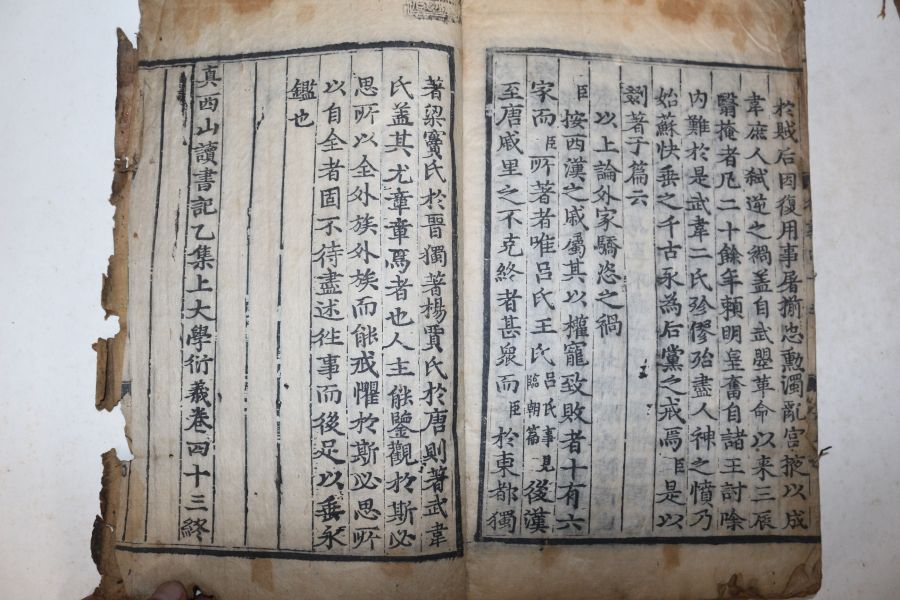 於賊后因復用事屠揃忠勲濁亂宫掖以成
韋庶人弑逆之禍盖自武曌革命以来三辰
翳掩者凡二十餘年頼明皇奮自諸王討除
内難於是武韋二氏殄僇殆盡人神之憤乃
始蘇快垂之千古永為后黨之戒焉臣是以
劄著于篇云
以上論外家驕恣之禍
臣按西漢之戚屬其以權寵致敗者十有六
家而臣所著者唯吕氏王氏吕氏事見臨朝篇後漢
至唐戚里之不克終者甚衆而臣於東都獨
著梁竇氏於晋獨著楊賈氏於唐則著武韋
氏盖其尤章章焉者也人主能鑒觀於斯必
思所以全外族外族而能戒懼於斯必思所
以自全者固不待盡述徃事而後足以垂永
鑑也
真西山讀書記乙集上大學衍義卷四十三終